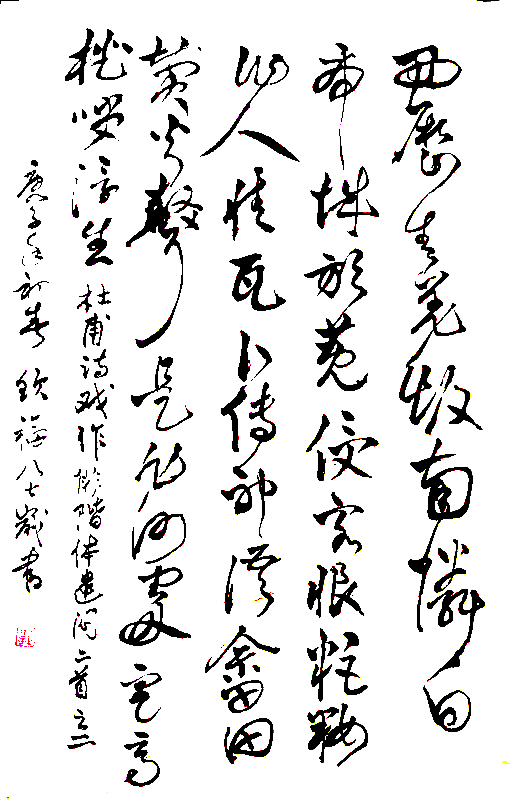 西歷青羌坂南憐白
帝城於菟侵客恨粔籹
作人情瓦卜傳神語畬田
費火聲是非何處定高
枕笑浮生 杜甫诗戏作俳谐体遣闷二首之二
庚子年初春 钦福八七岁書